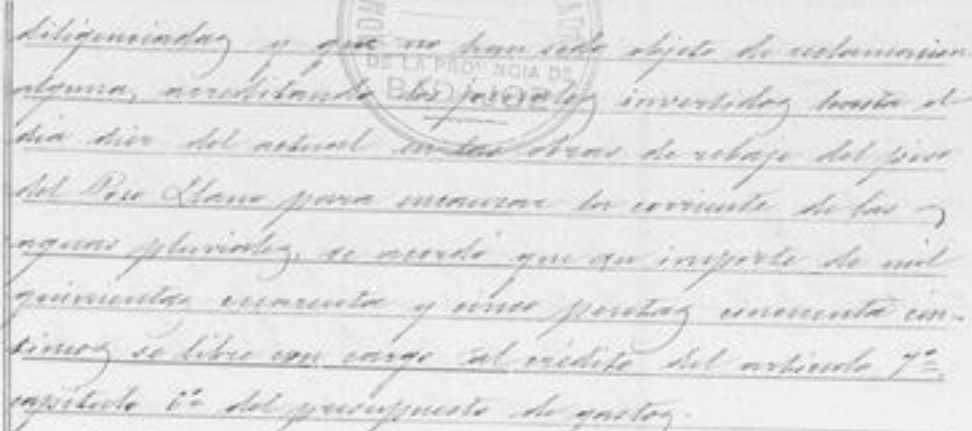 diligenciadas y que no han sido objeto de reclamacion
alguna, acreditando los jornales invertidos hasta el
dia diez del actual en las obras de rebaje del piso
del Pozo Llano para encauzar la corriente de las
aguas pluviales, se acordó que su importe de mil
quinientas cuarenta y cinco pesetas cincuenta cén-
timos se libre con cargo al crédito del artículo 7º,
capítulo 6º del presupuesto de gastos.
DE LA PROVINCIA DE
BADAJOZ